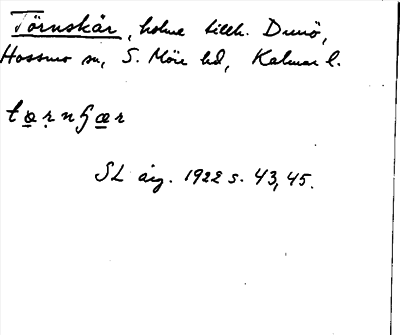 Törnskär, holme tillh. Dunö,
Hossmo sn, S. Möre hd, Kalmar l.
tœ̣ṛnʃæ̣r
SL årg. 1922 s. 43, 45.